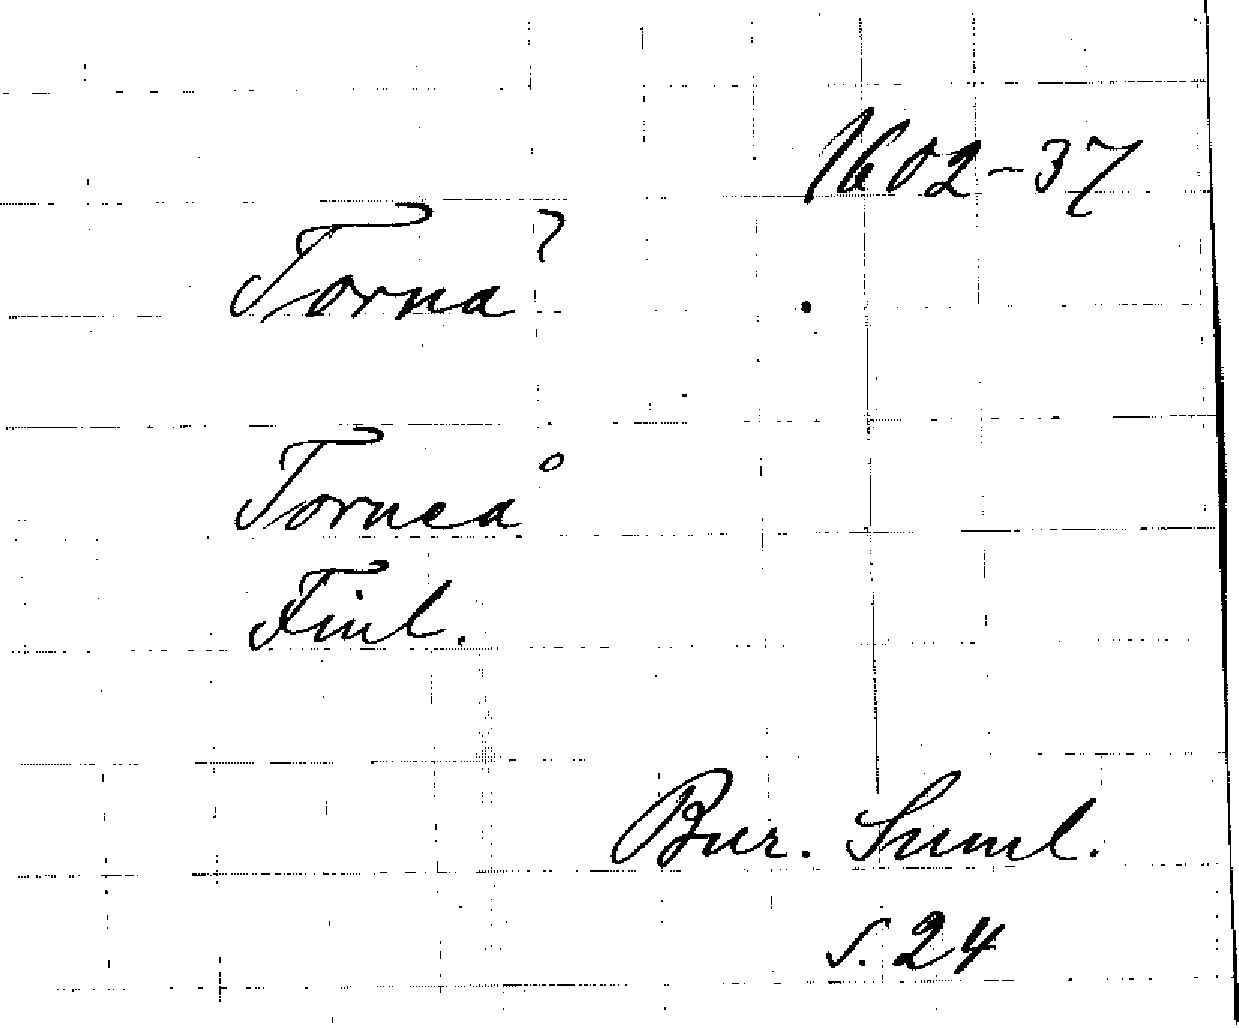 1602-37
Torna?
Torneå
Finl.
Bur. Suml.
s. 24